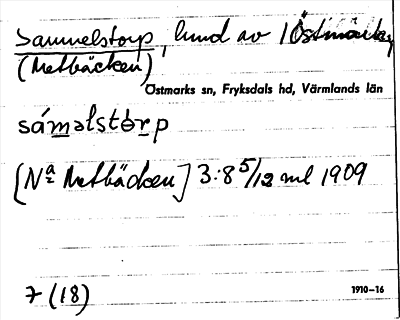 Samuelstorp, lund av Östmark
(Metbäcken)
Östmarks sn, Fryksdals hd, Värmlands län
sáməlstòrp
[Nª Metbäcken] 3:8 5/12 mtl 1909
7 (18)
1910-16